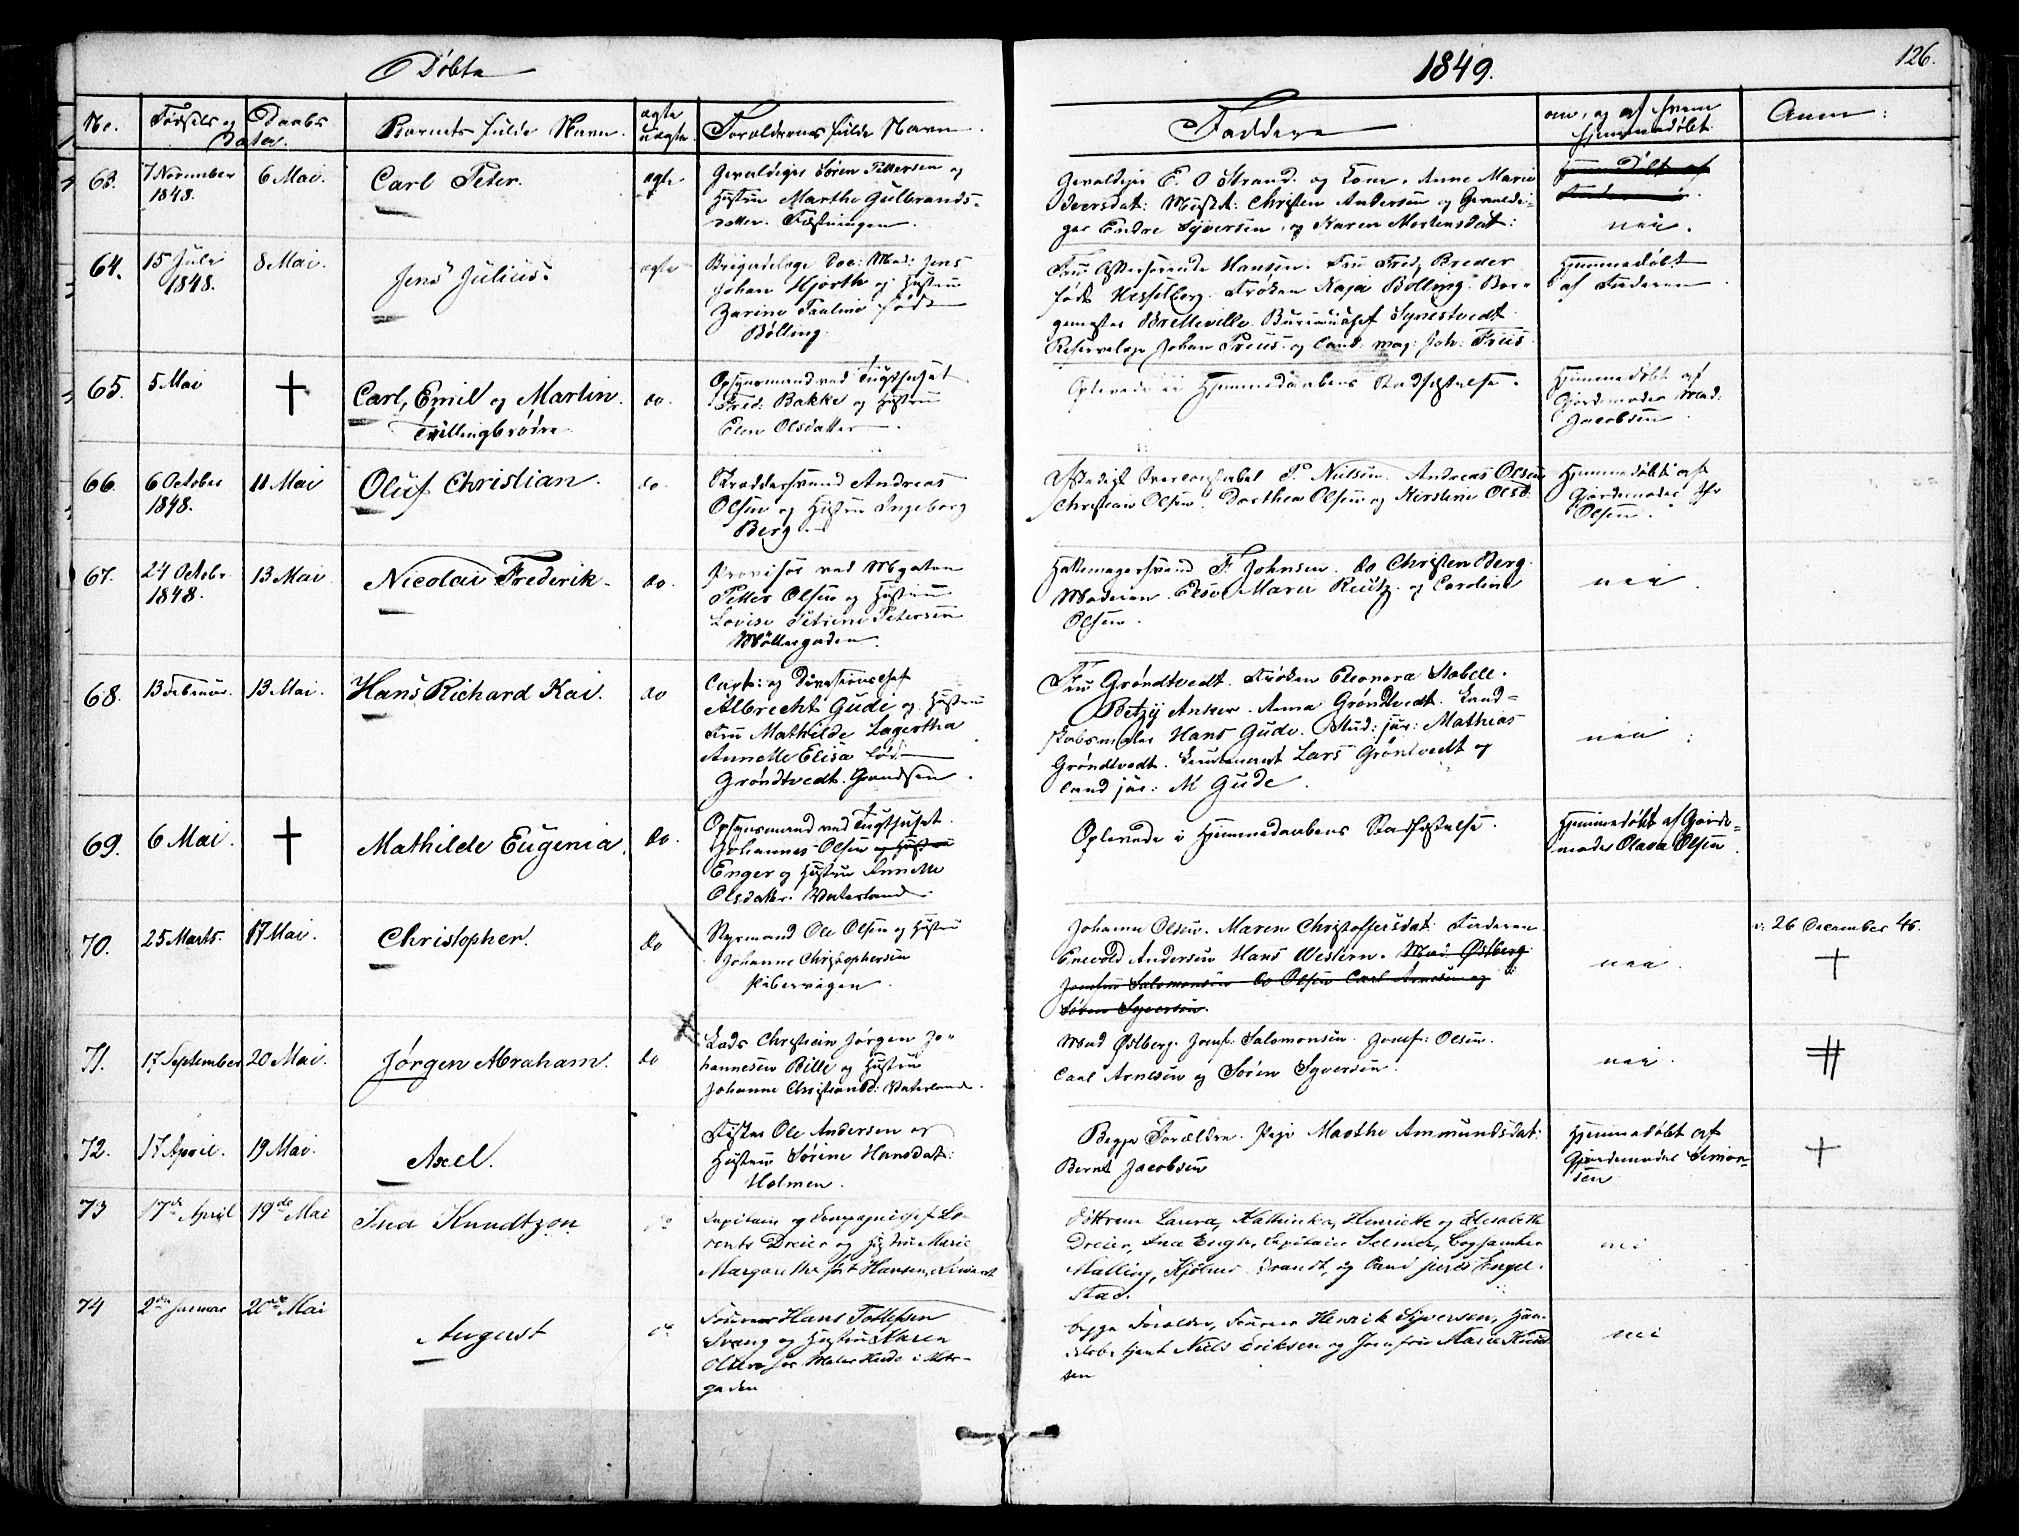 Døbte
1849.
126.
No.
Fødsels og Daabs
Dater.
Barnets fulde Navn.
ægte
uægte
Forældrenes fulde Navn.
Faddere
om, og af hvem
hjemmedøbt
Anm:
63.
7 November
1848.
6 Mai.
Carl Peter.
ægte
Geveldiger Søren Pettersen og
Hustru Marthe Gulbrands-
datter. Fæstningen.
Geveldiger E. O Strand. og Kone. Anne Marie
Iversdat: Christen Andersen og Geveldi-
ger Endre Syversen og Karen Mortensdat:
nei.
64.
15 Juli
1848.
8 Mai.
Jens Julius.
ægte
Brigadelæge Doc: Med: Jens
Johan Hjorth og Hustru
Zarine Pauline født
Bølling.
Fru Hansen. Fru Fred. Breder
født Hesselberg. Frøken Kaja Bølling. Bor-
germester Bretteville. Synestvedt
Reservelæge Johan Preus. og Cand: mag: Joh: Friis
Hjemmedøbt
af Faderen
65.
5 Mai
†
Carl, Emil og Martin.
Tvillingbrødre.
do.
Opsynsmand ved Tugthuset
Fred: Bakke og Hustru
Elen Olsdatter
Oplevede ei Hjemmedaabens Stadfæstelse.
Hjemmedøbt af
Gjordemoder Mad:
Jacobsen
66.
6 October
1848.
11 Mai
Oluf Christian.
do.
Skræddersvend Andreas
Olsen og Hustru Ingeborg
Berg
P. Nielsen. Andreas Olsen
Christian Olsen. Dorthea Olsen og Kirstine Olsd.
Hjemmedøbt af
Gjordemoder
Olsen.
67.
24 Octobr
1848.
13 Mai
Nicolai Frederik.
do.
Provisor ved
Petter Olsen og Hustru
Lovise Petrine Petersen
Møllergaden.
Hattemagersvend F. Johnsen. do Christen Berg.
Moderen. Elise Marie Reutz. og Caroline
Olsen.
nei.
68.
13 Februar.
13 Mai.
Hans Richard Kai.
do
Capt: og Divisionschef
Albrecht Gude og Hustru
Fru Mathilde Lagertha
Annette Elisa født
Grøndtvedt. Grændsen.
Fru Grøndtvedt. Frøken Eleonora Stabell.
Betzy Anker. Anna Grøndtvedt. Land-
skabsmaler Hans Gude. Stud: jur: Mathias
Grøndtvedt. Lars Grøndtvedt og
Cand jur: M Gude.
nei.
69.
6 Mai.
†
Mathilde Eugenia.
do.
Opsynsmand ved Tugthuset.
Johannes Olsen og Hustru
Enger og Hustru Annette
Olsdatter. Vaterland.
Oplevede ei Hjemmedaabens Stadfæstelse.
Hjemmedøbt af Gjorde-
moder Olava Olsen
70.
25 Marts.
17 Mai.
Christopher.
do
Styrmand Ole Olsen og Hustru
Johanne Christophersen
Pibervigen.
Johanne Olsen. Maren Christoffersdat: Faderen.
Enevold Andersen Hans Western. Mad. Østberg.
Jomfru Salomonsen do Olsen Carl Arnesen og
Søren Syversen.
nei.
26 December 46.
†
71.
17 September
20 Mai.
Jørgen Abraham.
do
Lods Christian Jørgen Jo-
hannesen Bille og Hustru
Johanne Christiansd: Vaterland.
Mad Østberg. Jomf: Salomonsen. Jomf: Olsen.
Carl Arnesen og Søren Syversen.
nei.
72.
17 April.
19 Mai.
Axel.
Fisker Ole Andersen og
Hustru Sørine Hansdat:
Holmen.
Begge Forældre. Pige Marthe Ammundsdat:
Bernt Jacobsen
Hjemmedøbt af
Gjordemoder Simon-
sen
†
73
17de April
19de Mai
Ina Knudtzon
do
Capitain og Compagnichef Lo-
rentz Dreier og Hustru Marie
Margarethe født Hansen,
Frøknerne Laura, Kathinka, Henriette og Elisabeth
Dreier, Ina Engh, Capitain Selmer,
Malling, Kjøbmd. Brandt, og Cand juris Engel-
stad.
nei
74
2den Januar
20de Mai
August
do
Hans Tollefsen
Svang og Hustru Karen
Olsen hos Maler Hude i
gaden
begge Forældre, Henrik Syversen,
Niels Eriksen og Jomfru Marie Knud
sen
nei